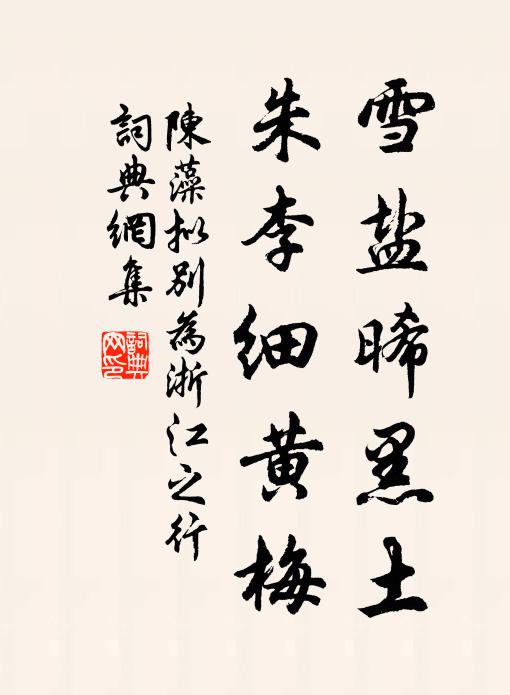 雪盐晞黑土
朱李细黄梅
陳藻拟别為浙江之行
詞典網集
詞典
网印